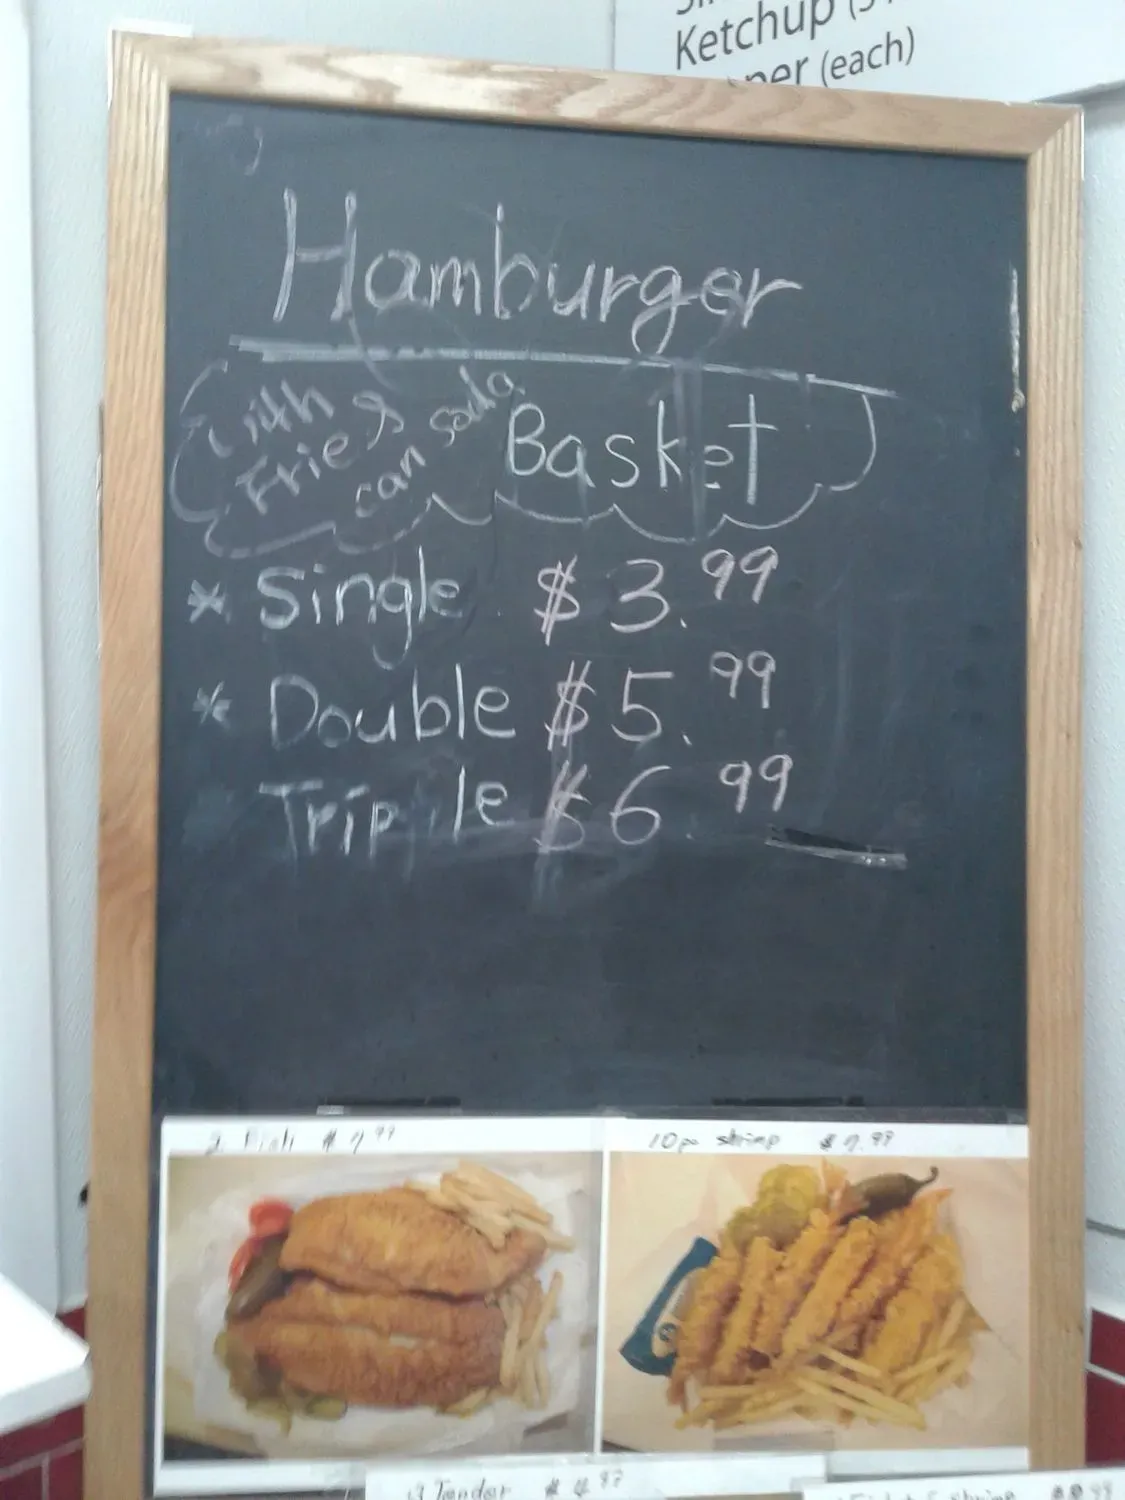 Ketchup
(each)
Hamburger
with
Fries
can soda
Basket
* Single $3.99
* Double $5.99
Triple $6.99
2 Fish $7.99
10pc shrimp $9.99
3 Tender $4.97
shrimp